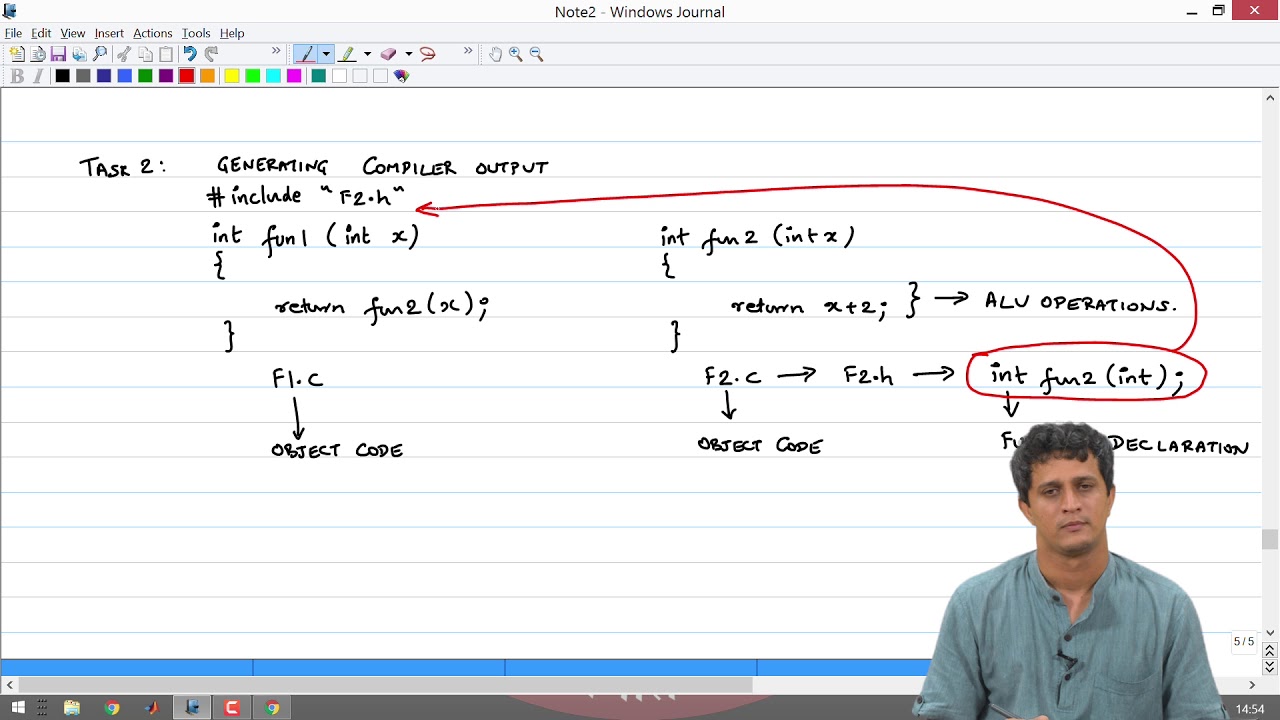 Note2 - Windows Journal
File Edit View Insert Actions Tools Help
B I
TASK 2: GENERATING COMPILER OUTPUT
#include "F2.h"
int fun1 (int x)
{
return fun2(x);
}
F1.c
OBJECT CODE
int fun2 (int x)
{
return x+2; } → ALU OPERATIONS.
}
F2.c → F2.h → int fun2 (int);
OBJECT CODE
DECLARATION
5 / 5
14:54